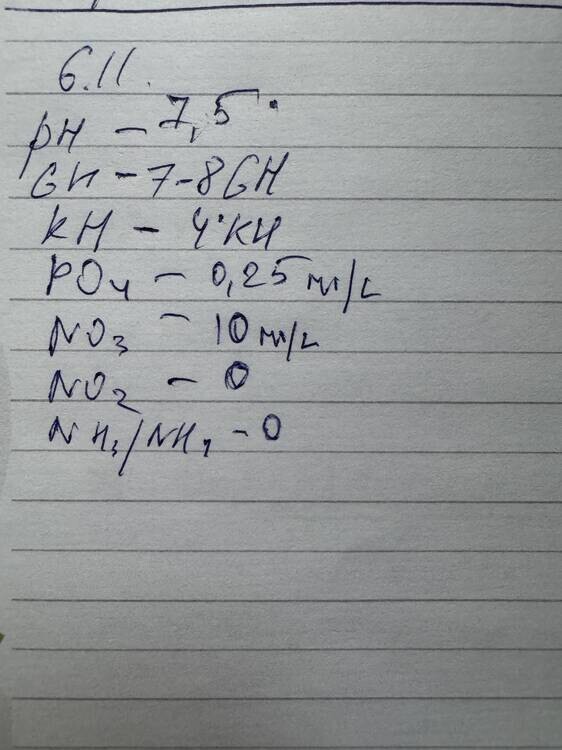 6.11.
pH - 7,5
GH - 7-8GH
KH - 4°KH
PO4 - 0,25 m/L
NO3 - 10 m/L
NO2 - 0
NH3/NH4 - 0